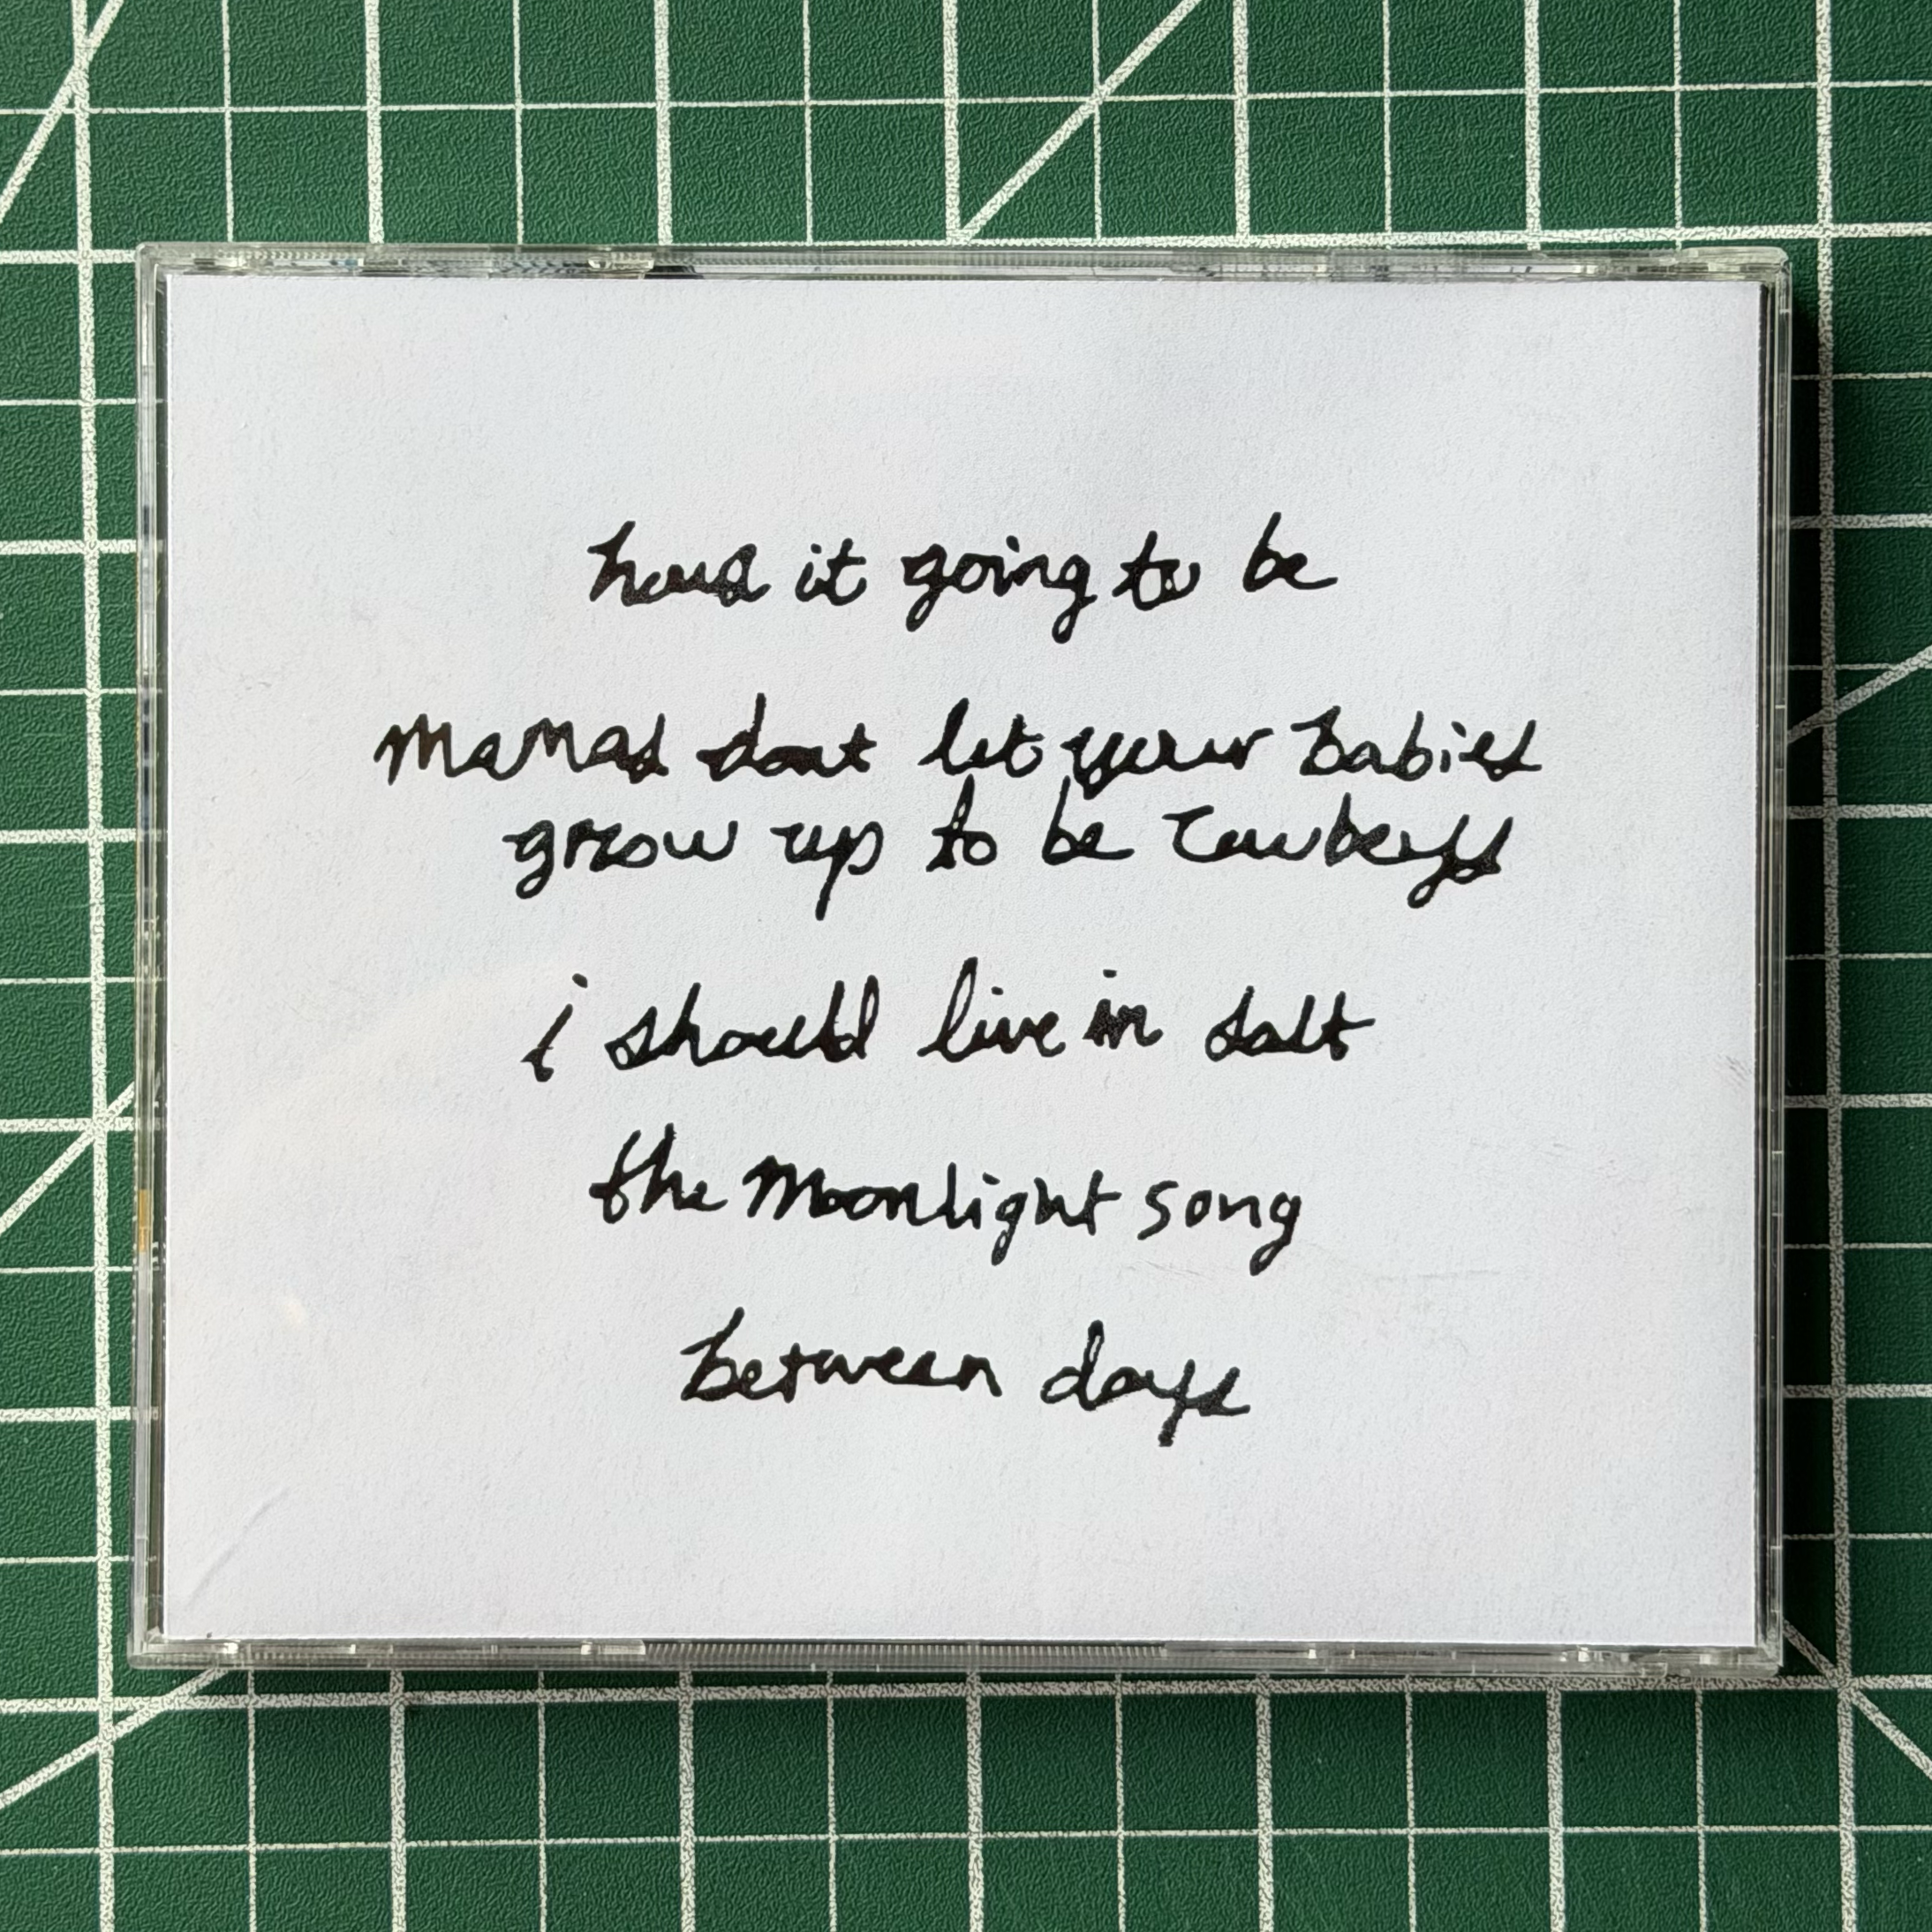 hows it going to be
mamas dont let your babies
grow up to be cowboys
i should live in salt
the moonlight song
between days